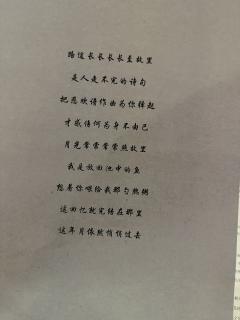 路途长长长长至故里
是人走不完的诗句
把悲欢请作曲为你弹起
才感伤何为身不由己
月光常常常常照故里
我是放回池中的鱼
想着你喂给我那勺热粥
这回忆就完结在那里
这年月依然悄悄过去